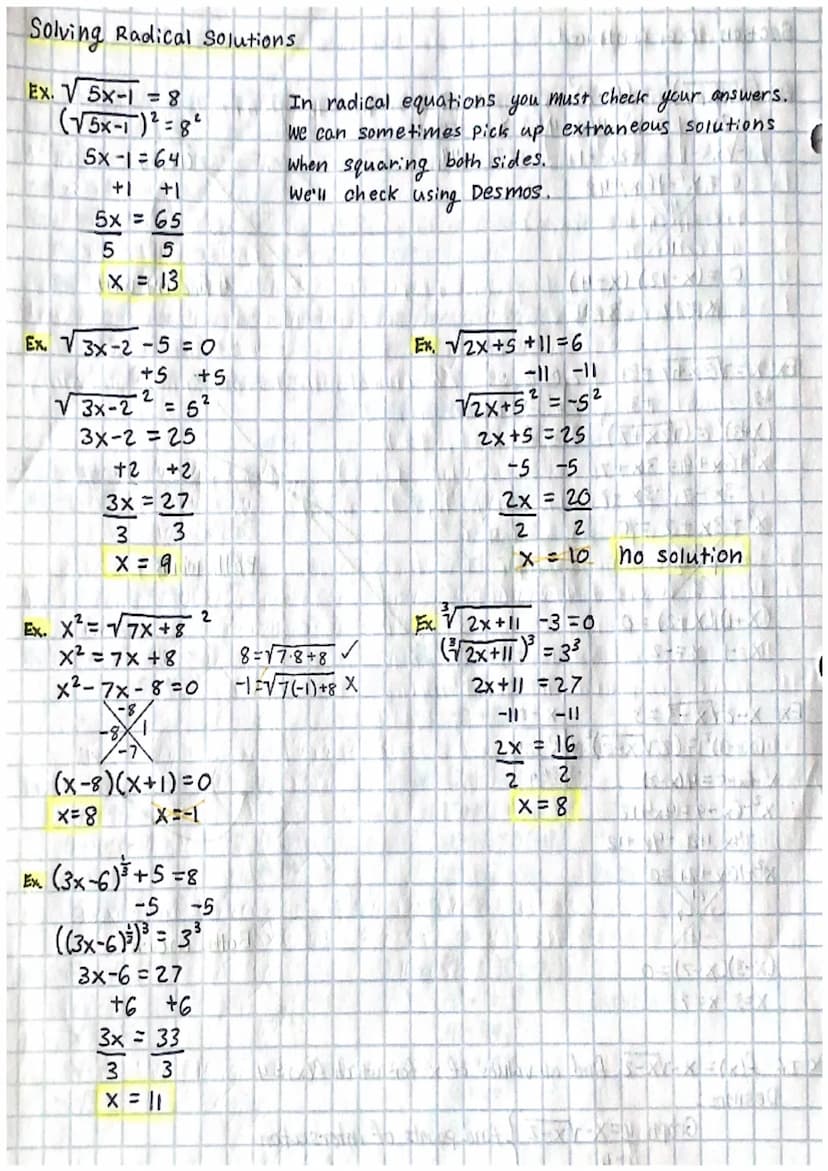 Solving Radical Solutions
Ex. √5x-1 = 8
(√5x-1)² = 8²
5x-1 = 64
+1 +1
5x = 65
5 5
x = 13
In radical equations you must check your answers.
We can sometimes pick up extraneous solutions
when squaring both sides.
We'll check using Desmos.
Ex. √3x-2 -5 = 0
+5 +5
√3x-2² = 5²
3x-2 = 25
+2 +2
3x = 27
3 3
x = 9
Ex. √2x+5 +11 = 6
-11 -11
√2x+5² = -5²
2x+5 = 25
-5 -5
2x = 20
2 2
x = 10 no solution
Ex. x² = √7x+8 ²
x² = 7x+8
x²-7x-8=0
-8
-8 1
-7
(x-8)(x+1)=0
x=8 x=-1
8=√7·8+8 ✓
-1=√7(-1)+8 X
Ex. ³√2x+11 -3 = 0
(³√2x+11)³ = 3³
2x+11 = 27
-11 -11
2x = 16
2 2
x = 8
Ex. (3x-6)^⅓ +5 = 8
-5 -5
((3x-6)^⅓)³ = 3³
3x-6 = 27
+6 +6
3x = 33
3 3
x = 11